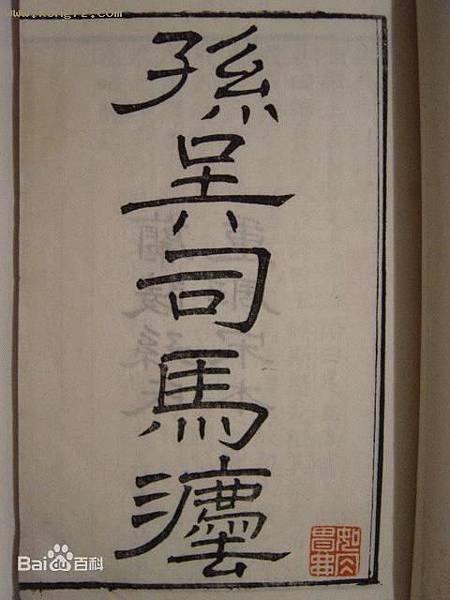 www.kongfz.com
孫吴司馬灋
Bai百科